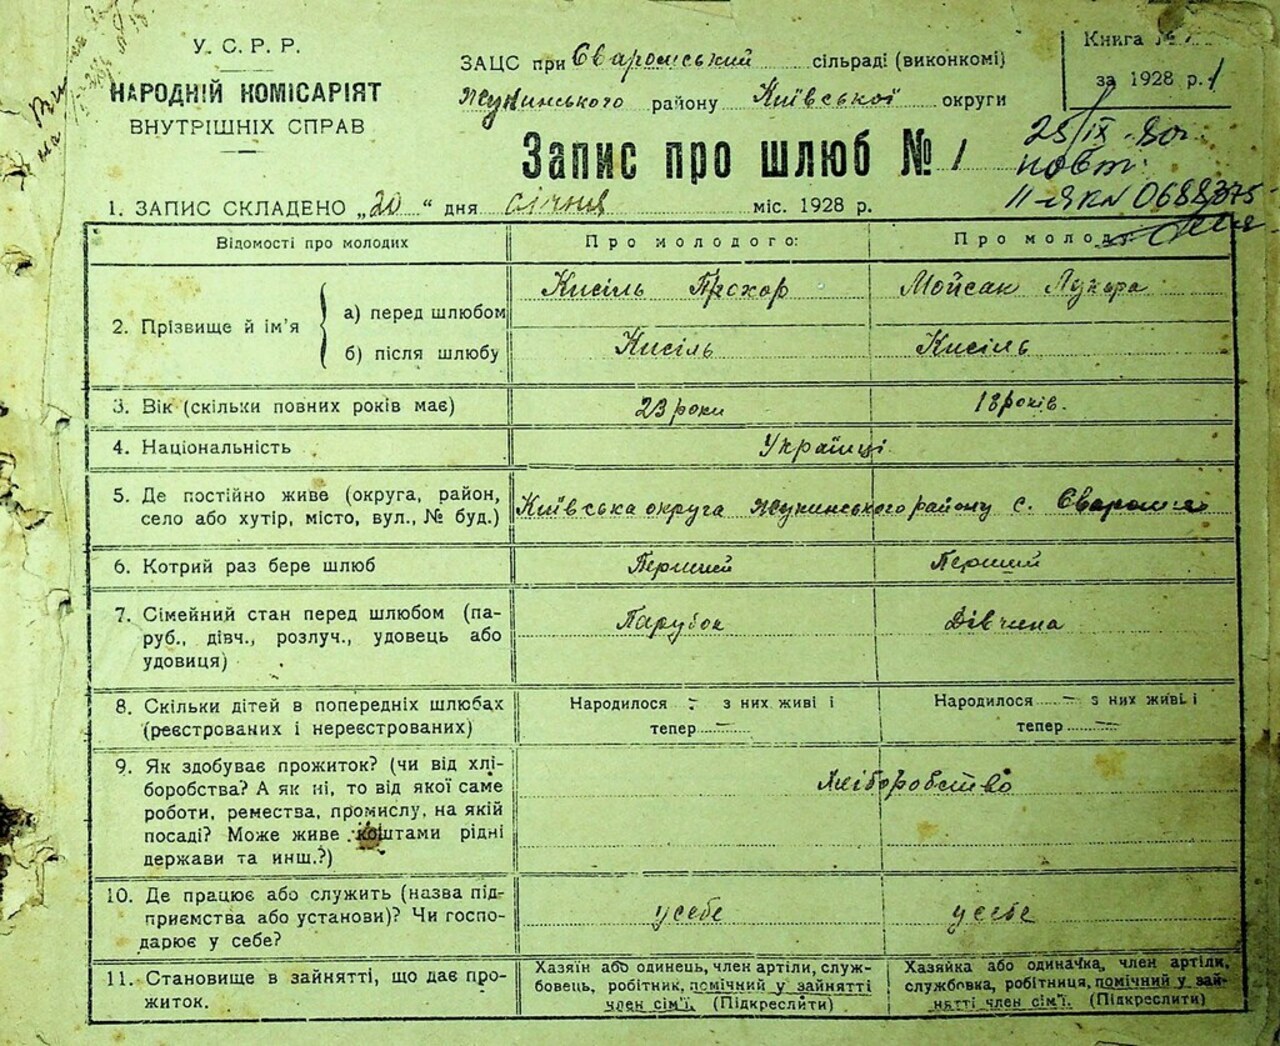 У. С. Р. Р.
НАРОДНІЙ КОМІСАРІЯТ
ВНУТРІШНІХ СПРАВ
ЗАЦС при Сваромський сільраді (виконкомі)
Жукинського району Київської округи
Книга №
за 1928 р. 1
Запис про шлюб № 1
25/IX-80
повт.
II-ЯК № 0688375
1. ЗАПИС СКЛАДЕНО „20" дня січня міс. 1928 р.
Відомості про молодих
Про молодого:
Про молод
2. Прізвище й ім'я
а) перед шлюбом
Кисіль Прохор
Мойсак Лукера
б) після шлюбу
Кисіль
Кисіль
3. Вік (скільки повних років має)
23 роки
18 років.
4. Національність
Українці
5. Де постійно живе (округа, район,
село або хутір, місто, вул., № буд.)
Київська округа Жукинського району с. Сваромя
6. Котрий раз бере шлюб
Перший
Перший
7. Сімейний стан перед шлюбом (па-
руб., дівч., розлуч., удовець або
удовиця)
Парубок
Дівчина
8. Скільки дітей в попередніх шлюбах
(реєстрованих і нереєстрованих)
Народилося – з них живі і
тепер –
Народилося – з них живі і
тепер –
9. Як здобуває прожиток? (чи від хлі-
боробства? А як ні, то від якої саме
роботи, ремества, промислу, на якій
посаді? Може живе коштами рідні
держави та инш.?)
Хліборобство
10. Де працює або служить (назва під-
приємства або установи)? Чи госпо-
дарює у себе?
у себе
у себе
11. Становище в зайнятті, що дає про-
житок.
Хазяїн або одинець, член артілі, служ-
бовець, робітник, помічний у зайнятті
член сім'ї. (Підкреслити)
Хазяйка або одиначка, член артілі,
службовка, робітниця, помічний у зай-
нятті член сім'ї. (Підкреслити)